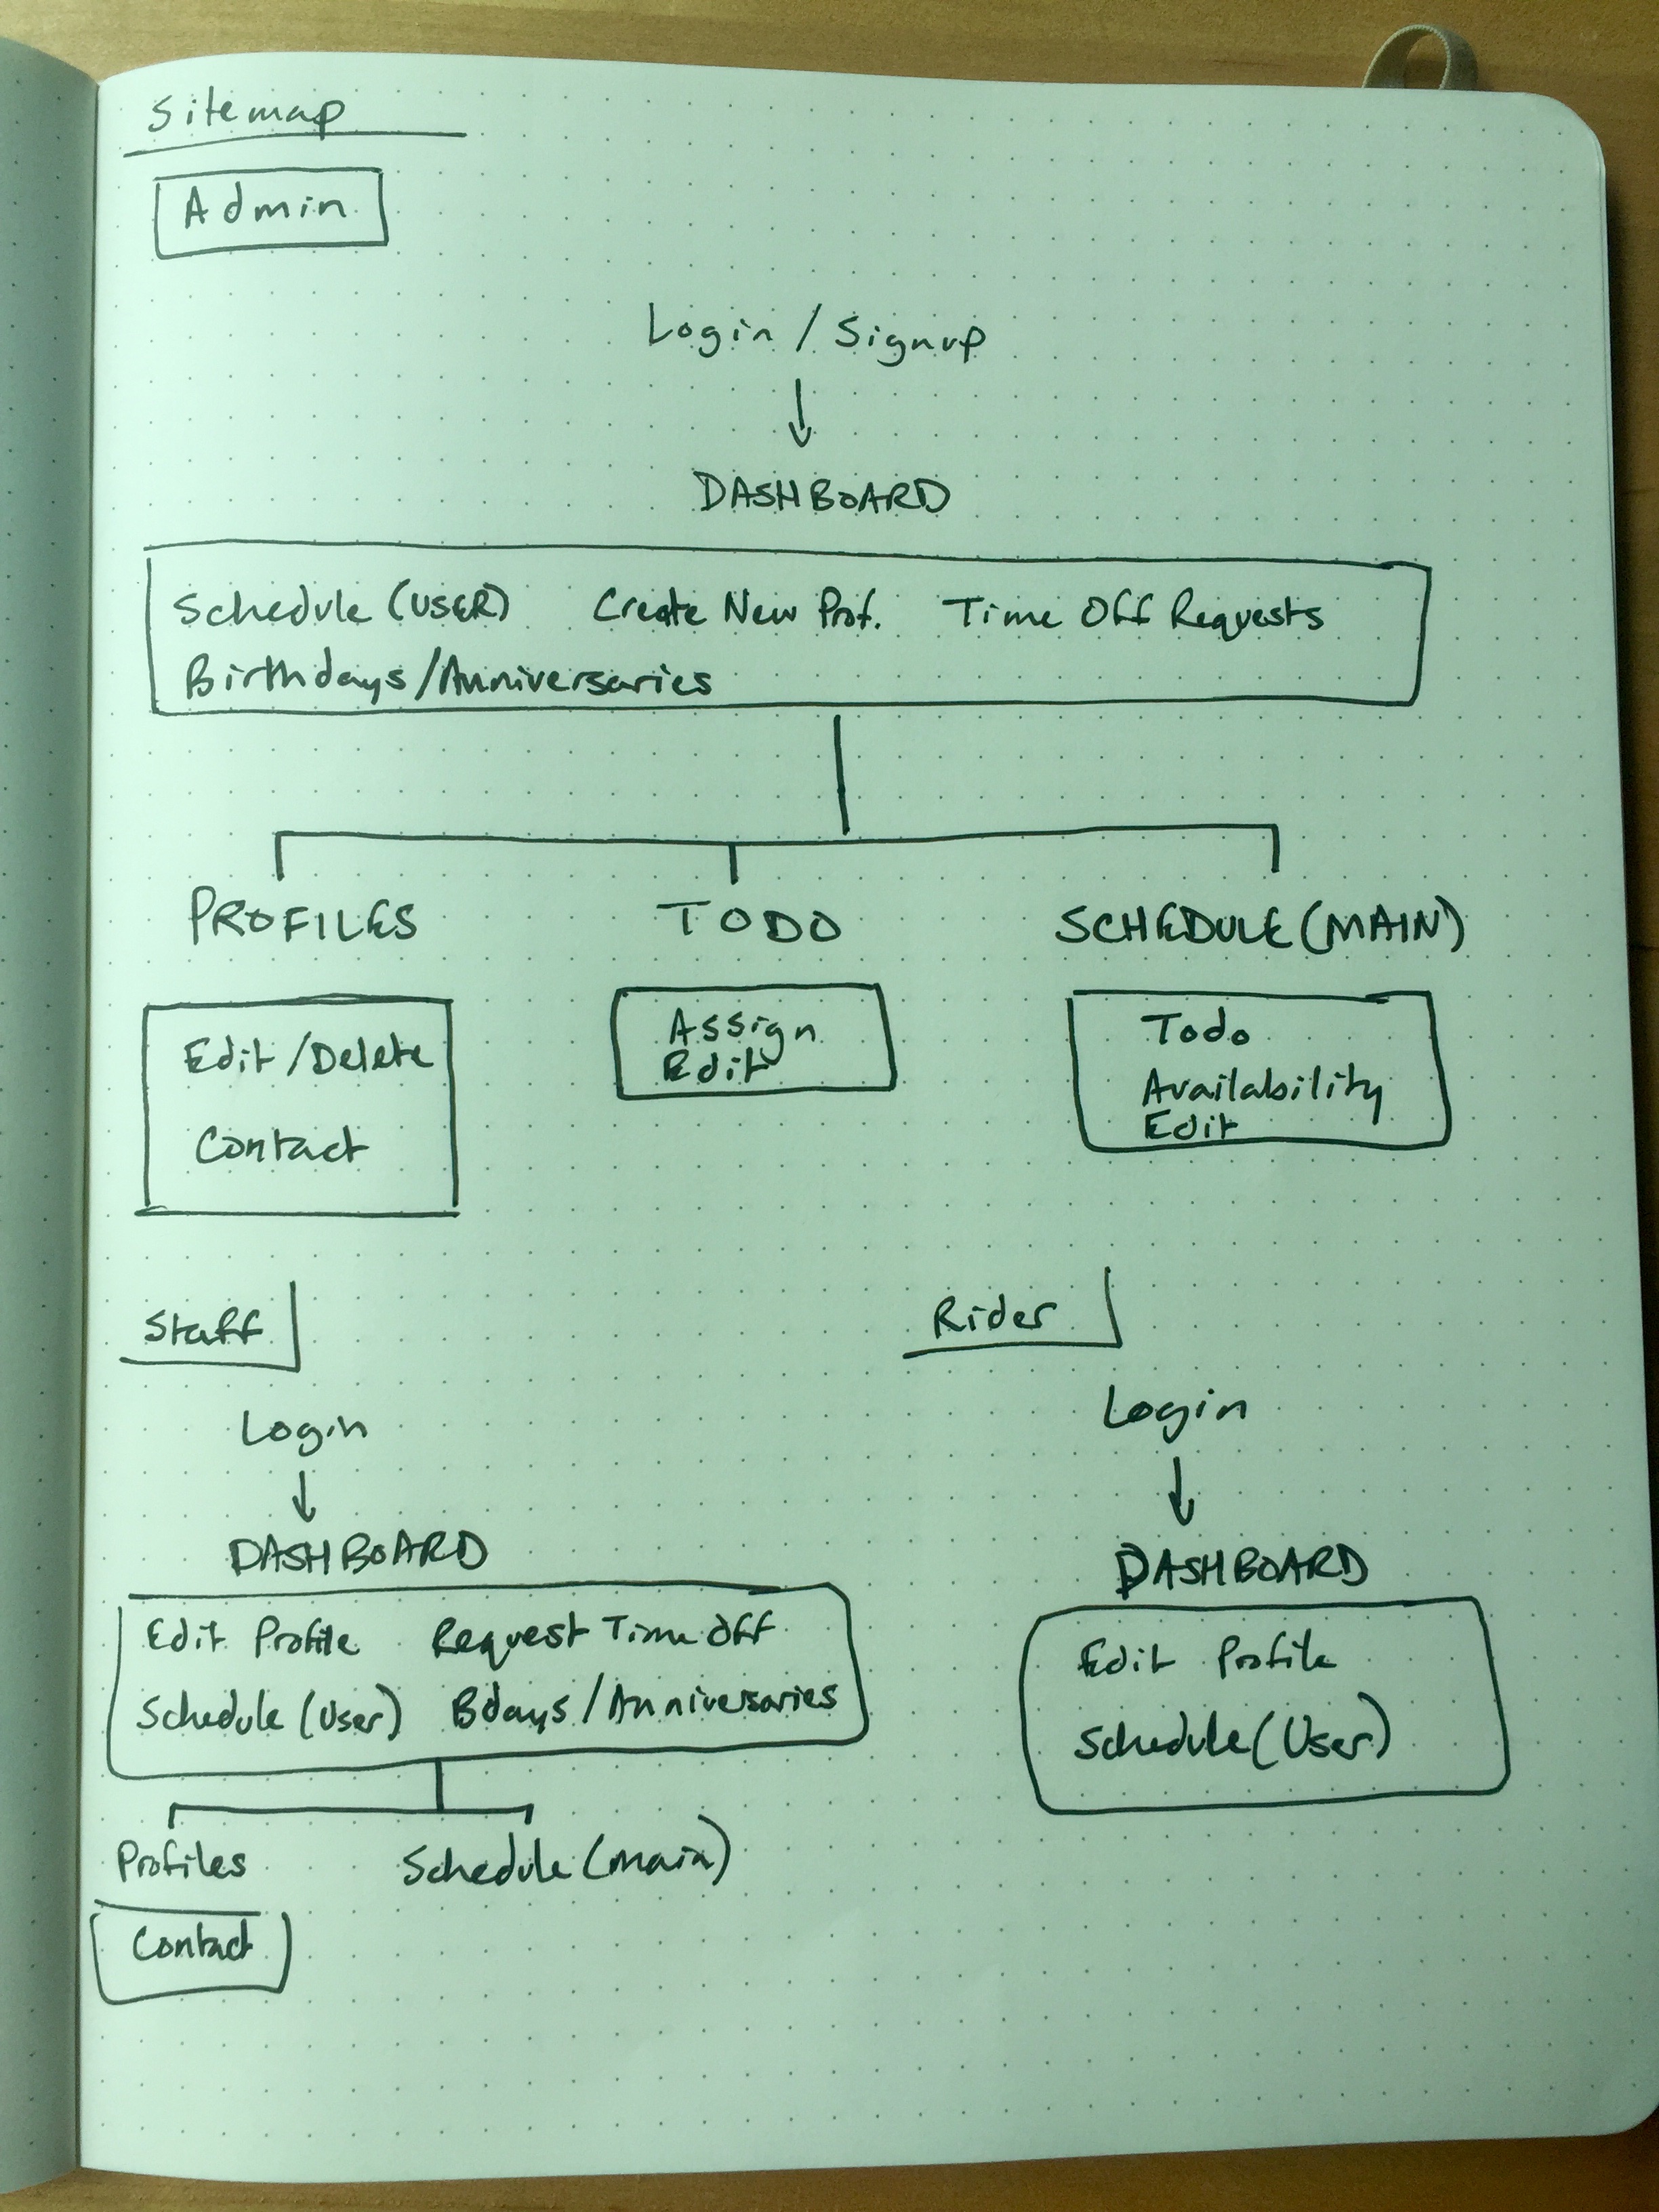 Sitemap
Admin
Login / Signup
DASHBOARD
Schedule (USER) Create New Prof. Time Off Requests
Birthdays/Anniversaries
PROFILES TODO SCHEDULE (MAIN)
Edit /Delete
Contact
Assign
Edit
Todo
Availability
Edit
Staff
Login
DASHBOARD
Edit Profile Request Time Off
Schedule (User) Bdays/Anniversaries
Profiles Schedule (main)
Contact
Rider
Login
DASHBOARD
Edit Profile
Schedule (User)